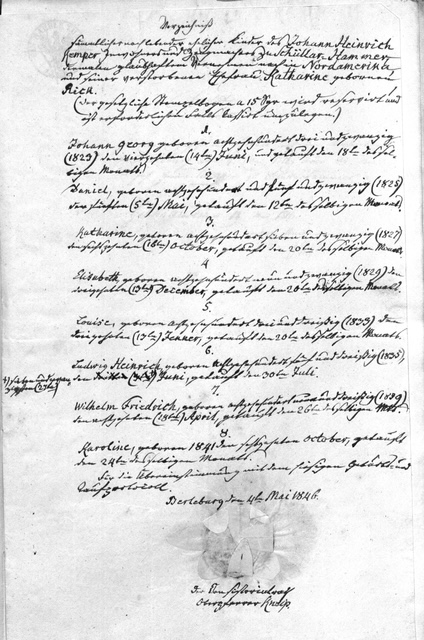 Verzeichniß
sämmtlicher nach lebender ehelicher Kinder des Johann Heinrich
Kemper Einwohners und zu Schüllar Hammer,
nach Nordamerika
und seiner verstorbenen Ehefrau Katharine geborenen
Rick.
(Der gesetzliche Stempelbogen a 15 Sgr wird reservirt und
ist erforderlichen Falls cassirt umzulegen.)
1.
Johann Georg, geboren achtzehnhundert drei und zwanzig
(1823) den vierzehnten (14ten) Juni, und getauft den 18ten des sel-
bigen Monats.
2
Daniel, geboren achtzehnhundert und fünf und zwanzig (1825)
den fünften (5ten) Mai, getauft den 12ten desselbigen Monats.
3
Katharine, geboren achtzehnhundert sieben und zwanzig (1827)
den sechszehnten (16ten) October, getauft den 20ten desselbigen Monats.
4
Elisabeth, geboren achtzehnhundert neun und zwanzig (1829) den
dreizehnten (13ten) December, getauft den 20ten desselbigen Monats.
5.
Louise, geboren achtzehnhundert drei und dreißig (1833) den
dreizehnten (13ten) Jenner, getauft den 20ten desselbigen Monats.
6.
Ludwig Heinrich, geboren achtzehnhundert fünf und dreißig (1835)
den Juni, getauft den 30ten Juli.
sieben und zwan-
zigsten (27ten)
7.
Wilhelm Friedrich, geboren achtzehnhundert neun und dreißig (1839)
den achtzehnten (18ten) April, getauft den 26ten desselbigen Monats.
8
Karoline, geboren 1841 den sechszehnten October, getauft
den 24ten desselbigen Monats.
Für die Übereinstimmung mit dem hiesigen Geburts- und
Taufprotocoll.
Berleburg den 4ten Mai 1846.
Der Consistorialrath
Oberpfarrer